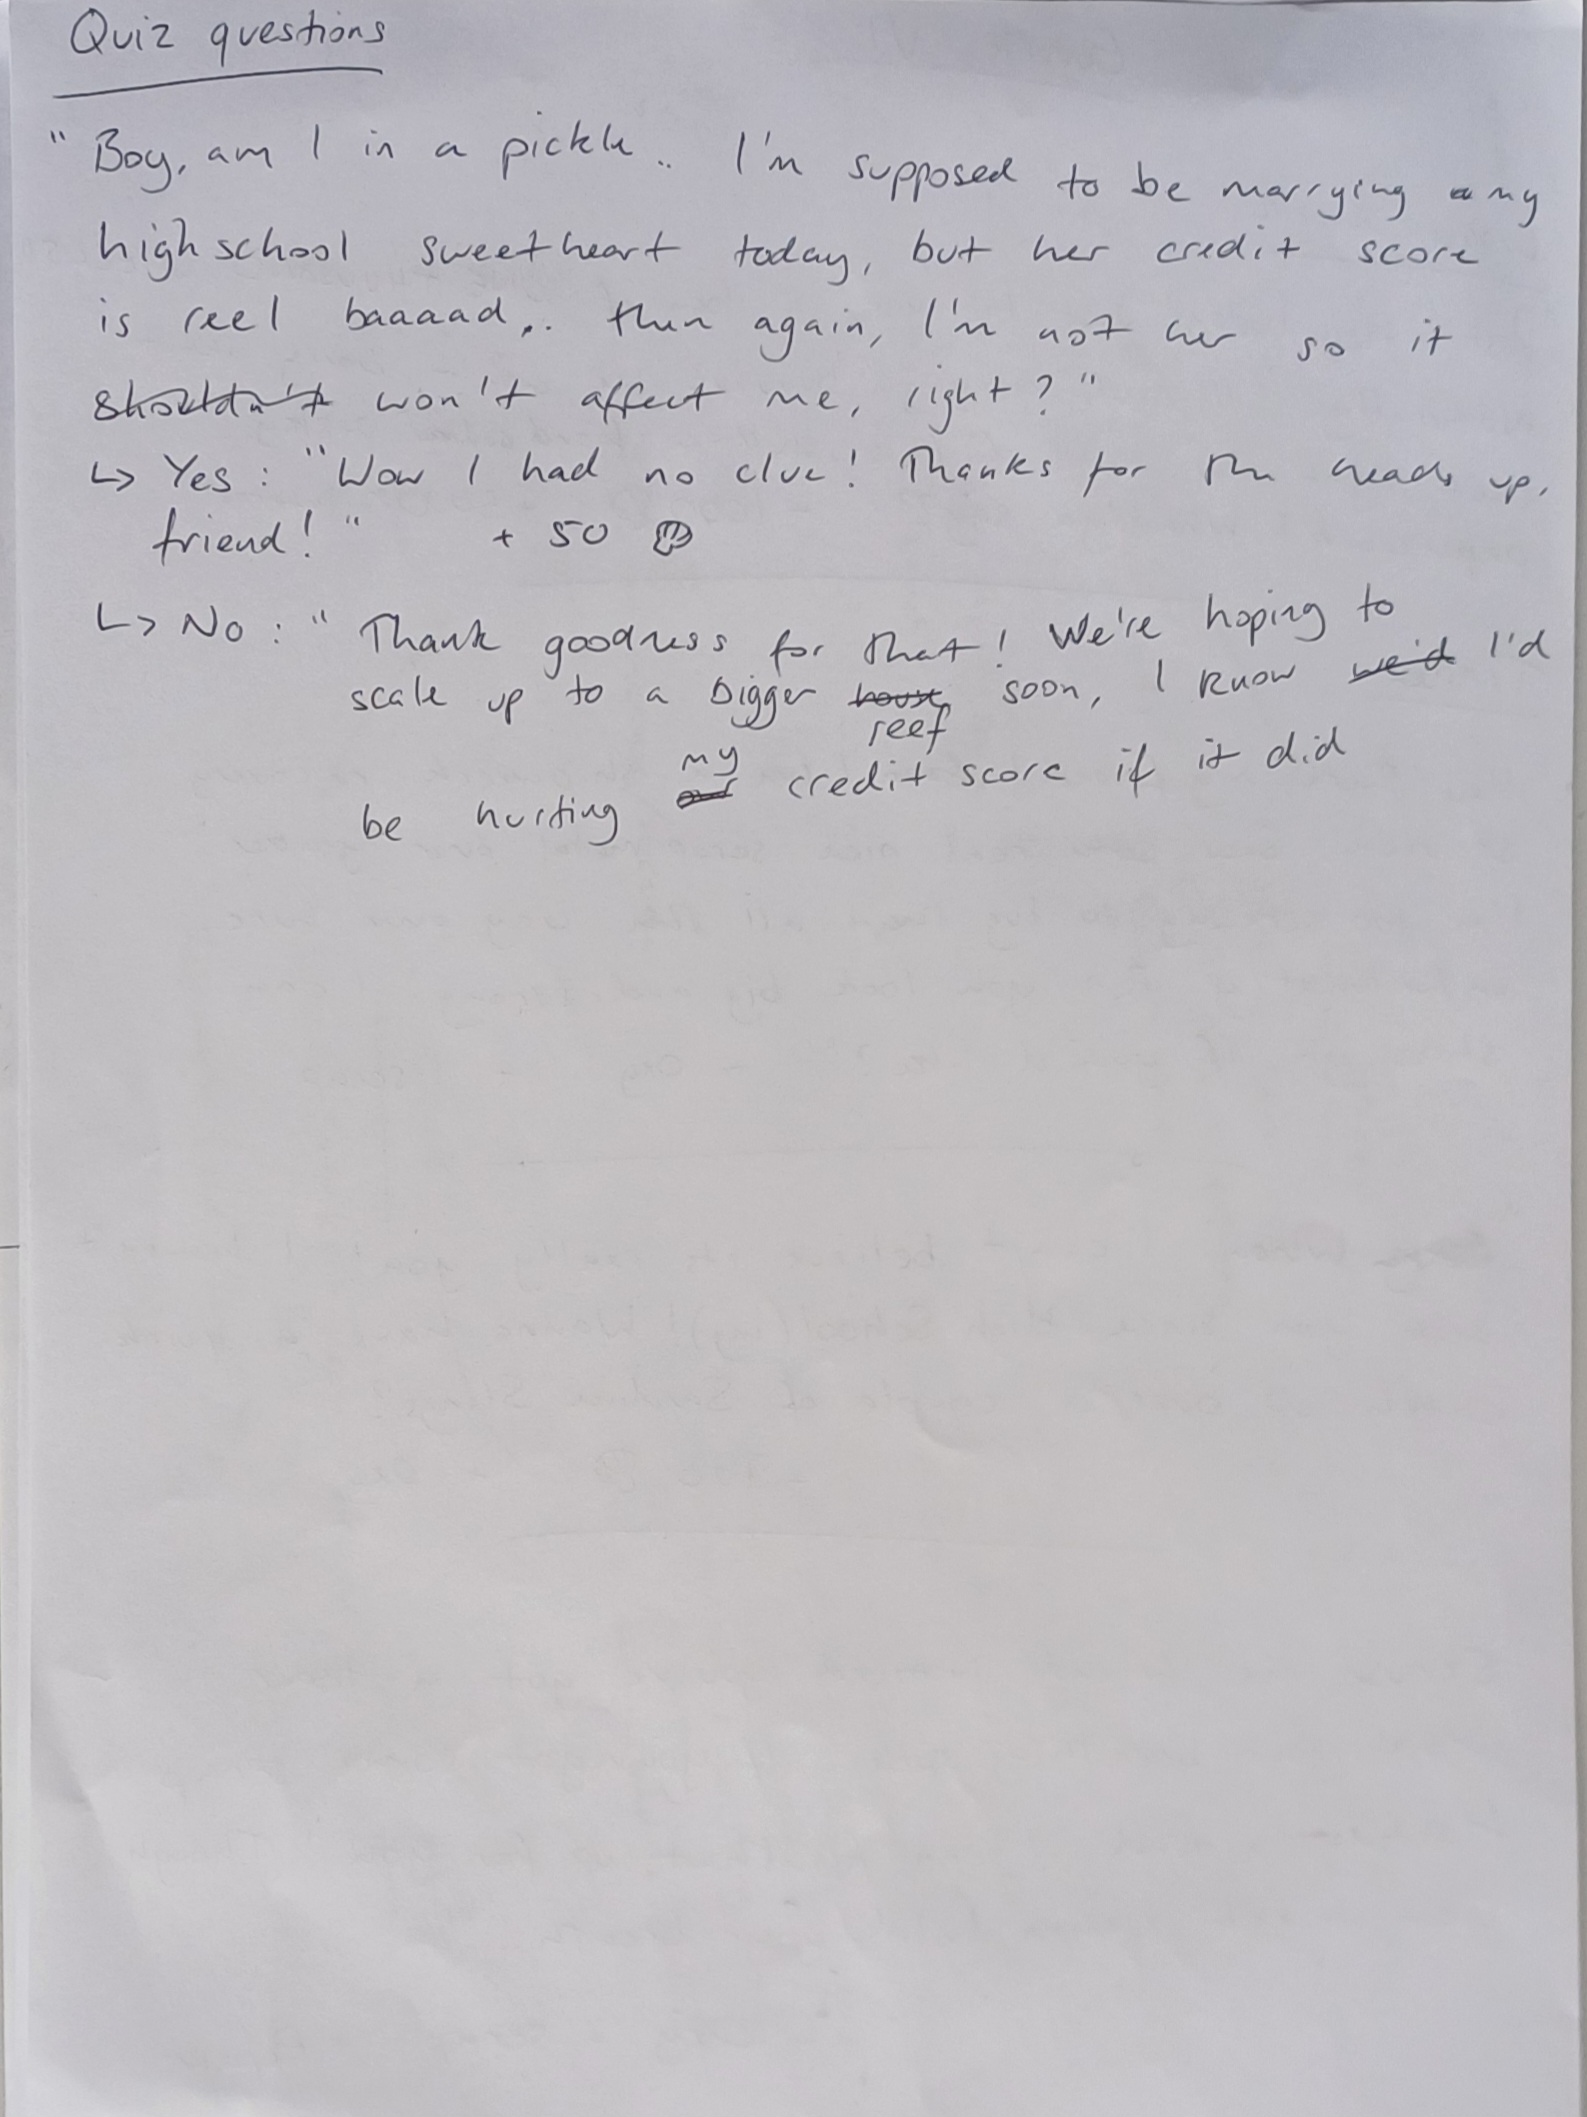 Quiz questions
"Boy, am I in a pickle.. I'm supposed to be marrying my
high school sweetheart today, but her credit score
is reel baaaad... then again, I'm not her so it
shouldn't won't affect me, right?"
↳ Yes: "Wow I had no clue! Thanks for the heads up,
friend!" + 50
↳ No: "Thank goodness for that! We're hoping to
scale up to a bigger house soon, I know we'd I'd
reef
my
be hurting our credit score if it did